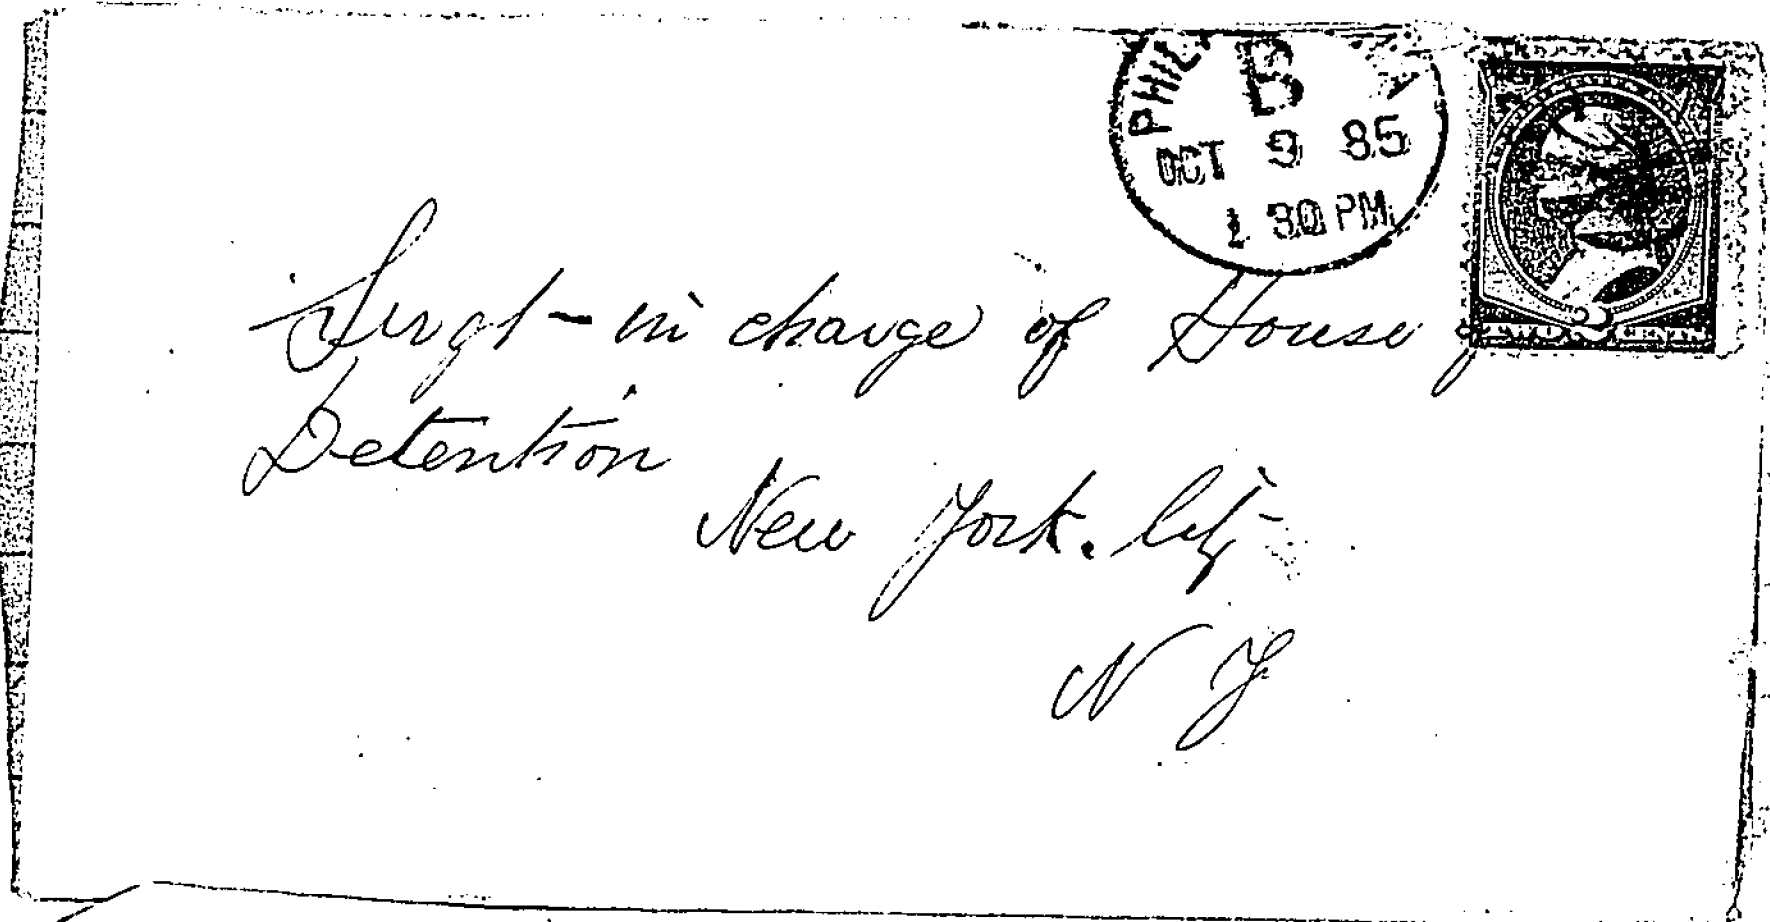 PHIL
B
OCT 9 85
1 30 PM
Sergt - in charge of House of
Detention
New York. City
N Y